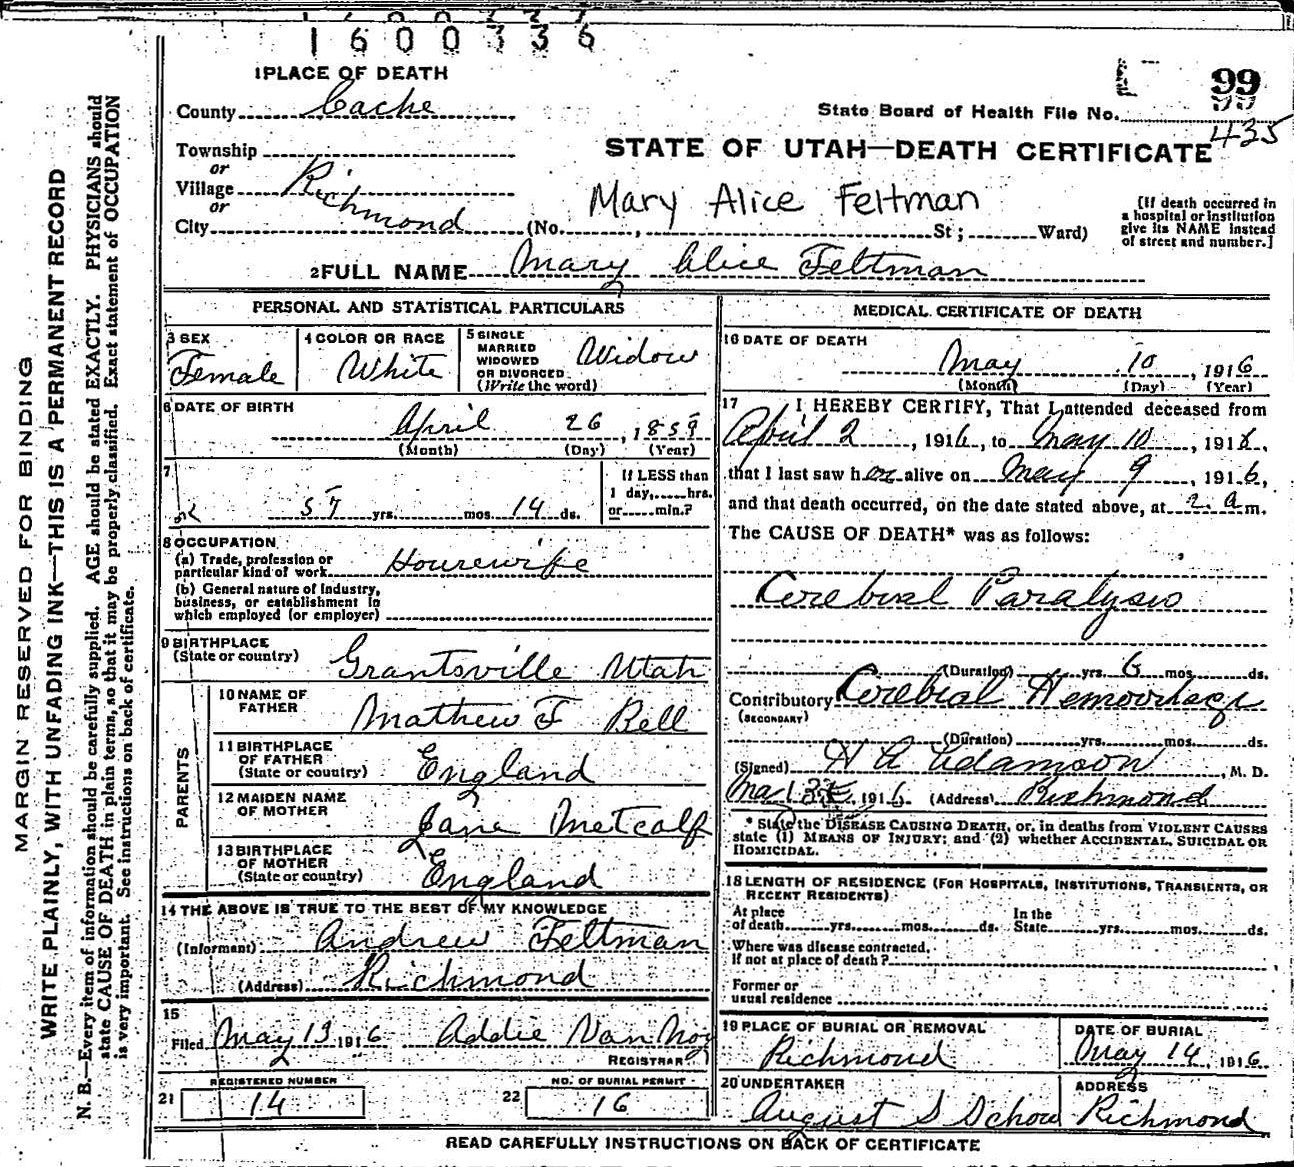 1600336
1 PLACE OF DEATH
County Cache
99
State Board of Health File No.
435
Township
or
Village Richmond
or
City (No. , St ; Ward)
STATE OF UTAH—DEATH CERTIFICATE
Mary Alice Feltman
[If death occurred in
a hospital or institution
give its NAME instead
of street and number.]
2 FULL NAME Mary Alice Feltman
PERSONAL AND STATISTICAL PARTICULARS
3 SEX
Female
4 COLOR OR RACE
White
5 SINGLE
MARRIED
WIDOWED
OR DIVORCED
(Write the word)
Widow
6 DATE OF BIRTH
April 26, 1859
(Month) (Day) (Year)
7
57 yrs. mos. 14 ds.
If LESS than
1 day, hrs.
or min.?
8 OCCUPATION
(a) Trade, profession or
particular kind of work Housewife
(b) General nature of industry,
business, or establishment in
which employed (or employer)
9 BIRTHPLACE
(State or country) Grantsville Utah
PARENTS
10 NAME OF
FATHER Mathew F Bell
11 BIRTHPLACE
OF FATHER
(State or country) England
12 MAIDEN NAME
OF MOTHER Jane Metcalf
13 BIRTHPLACE
OF MOTHER
(State or country) England
14 THE ABOVE IS TRUE TO THE BEST OF MY KNOWLEDGE
(Informant) Andrew Feltman
(Address) Richmond
15
Filed May 13 1916 Addie Van Noy
REGISTRAR
REGISTERED NUMBER
21 14
NO. OF BURIAL PERMIT
22 16
MEDICAL CERTIFICATE OF DEATH
16 DATE OF DEATH
May 10, 1916
(Month) (Day) (Year)
17 I HEREBY CERTIFY, That I attended deceased from
April 2, 1916, to May 10, 1916,
that I last saw her alive on May 9, 1916,
and that death occurred, on the date stated above, at 2 a m.
The CAUSE OF DEATH* was as follows:
Cerebral Paralysis
(Duration) yrs. 6 mos. ds.
Contributory Cerebral Hemorrhage
(SECONDARY)
(Duration) yrs. mos. ds.
(Signed) H A Adamson, M. D.
1916 (Address) Richmond
* State the DISEASE CAUSING DEATH, or, in deaths from VIOLENT CAUSES
state (1) MEANS OF INJURY; and (2) whether ACCIDENTAL, SUICIDAL OR
HOMICIDAL.
18 LENGTH OF RESIDENCE (FOR HOSPITALS, INSTITUTIONS, TRANSIENTS, OR
RECENT RESIDENTS)
At place In the
of death yrs. mos. ds. State yrs. mos. ds.
Where was disease contracted,
if not at place of death?
Former or
usual residence
19 PLACE OF BURIAL OR REMOVAL
Richmond
DATE OF BURIAL
May 14, 1916
20 UNDERTAKER
August S Schow
ADDRESS
Richmond
READ CAREFULLY INSTRUCTIONS ON BACK OF CERTIFICATE
MARGIN RESERVED FOR BINDING
WRITE PLAINLY, WITH UNFADING INK—THIS IS A PERMANENT RECORD
N. B.—Every item of information should be carefully supplied. AGE should be stated EXACTLY. PHYSICIANS should
state CAUSE OF DEATH in plain terms, so that it may be properly classified. Exact statement of OCCUPATION
is very important. See instructions on back of certificate.